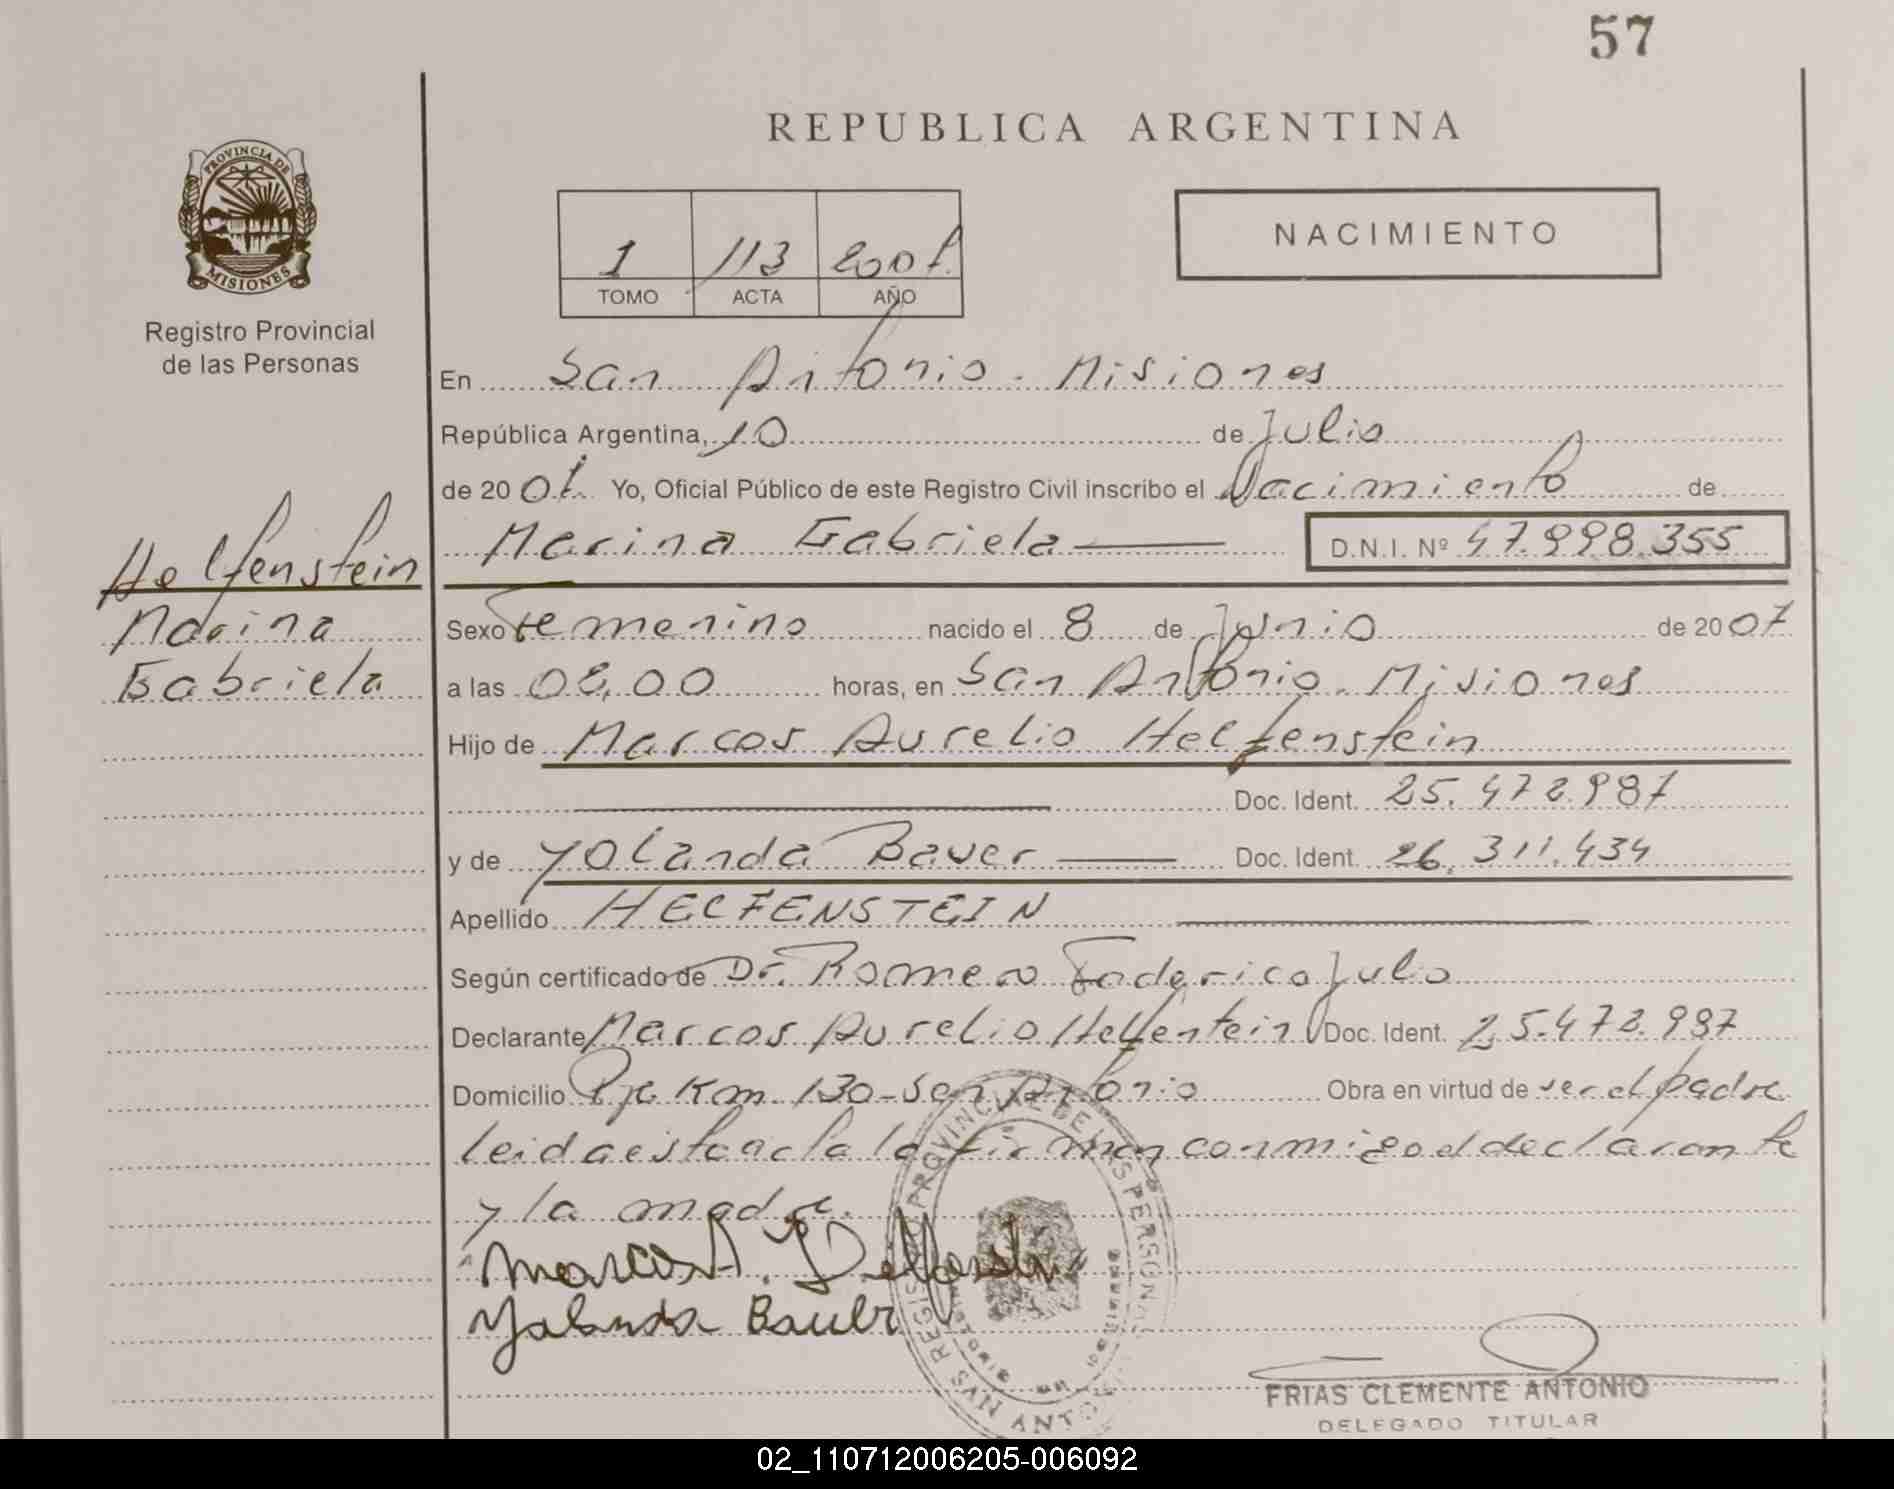 57
REPUBLICA ARGENTINA
PROVINCIA DE
MISIONES
Registro Provincial
de las Personas
1 113 2007
TOMO ACTA AÑO
NACIMIENTO
En San Antonio - Misiones
República Argentina, 10 de Julio
de 2007. Yo, Oficial Público de este Registro Civil inscribo el Nacimiento de
Marina Gabriela D.N.I. Nº 47.998.355
Helfenstein
Marina
Gabriela
Sexo Femenino nacido el 8 de Junio de 2007
a las 08,00 horas, en San Antonio - Misiones
Hijo de Marcos Aurelio Helfenstein
Doc. Ident. 25.472.987
y de Yolanda Bauer Doc. Ident. 26.311.434
Apellido HELFENSTEIN
Según certificado de Dr. Romero Federico Julio
Declarante Marcos Aurelio Helfentein Doc. Ident. 25.472.987
Domicilio Pje Km 130 - San Antonio Obra en virtud de ser el padre
leida esta acta la firman conmigo el declarante
y la madre.
Marcos A.
Yolanda Bauer
REGISTRO PROVINCIAL DE LAS PERSONAS
SAN ANTONIO
FRIAS CLEMENTE ANTONIO
DELEGADO TITULAR
02_110712006205-006092